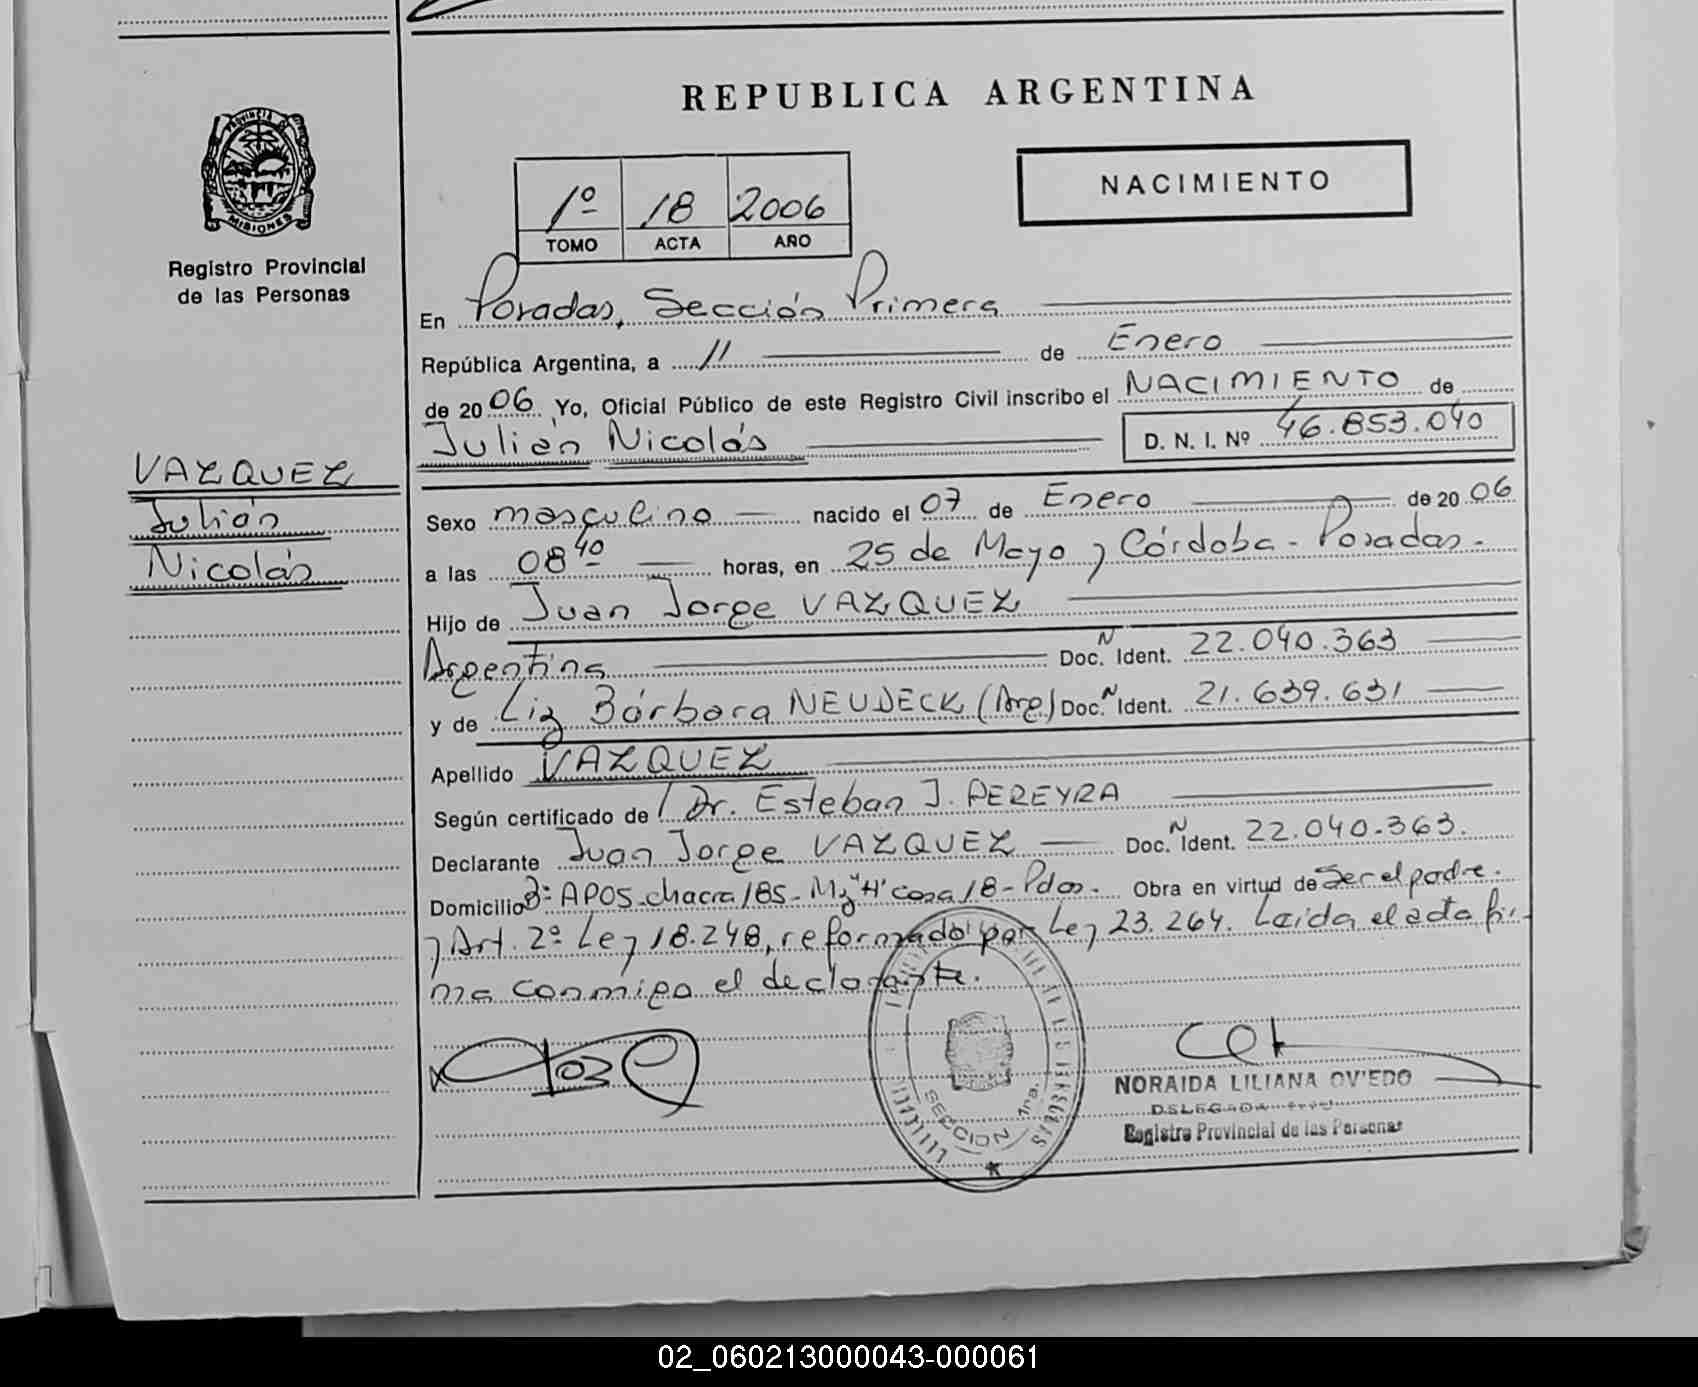 REPUBLICA ARGENTINA
PROVINCIA DE
MISIONES
Registro Provincial
de las Personas
NACIMIENTO
1º 18 2006
TOMO ACTA AÑO
En Posadas, Sección Primera
República Argentina, a 11 de Enero
de 2006 Yo, Oficial Público de este Registro Civil inscribo el NACIMIENTO de
Julián Nicolás D. N. I. Nº 46.853.040
VAZQUEZ
Julián
Nicolás
Sexo masculino nacido el 07 de Enero de 2006
a las 08 40 horas, en 25 de Mayo y Córdoba - Posadas -
Hijo de Juan Jorge VAZQUEZ
Argentina Doc. N Ident. 22.040.363
y de Liz Bárbara NEUDECK (Arg) Doc. N Ident. 21.639.631
Apellido VAZQUEZ
Según certificado de Dr. Esteban J. PEREYRA
Declarante Juan Jorge VAZQUEZ Doc. N Ident. 22.040.363.
Domicilio Bº APOS chacra 185 - Mz "H" casa 18 - Pdas. Obra en virtud de Ser el padre.
y Art. 2º Ley 18.248, reformado por Ley 23.264. Leida el acta fir-
ma conmigo el declarante.
SECCION 1ra.
NORAIDA LILIANA OVIEDO
Registro Provincial de las Personas
02_060213000043-000061